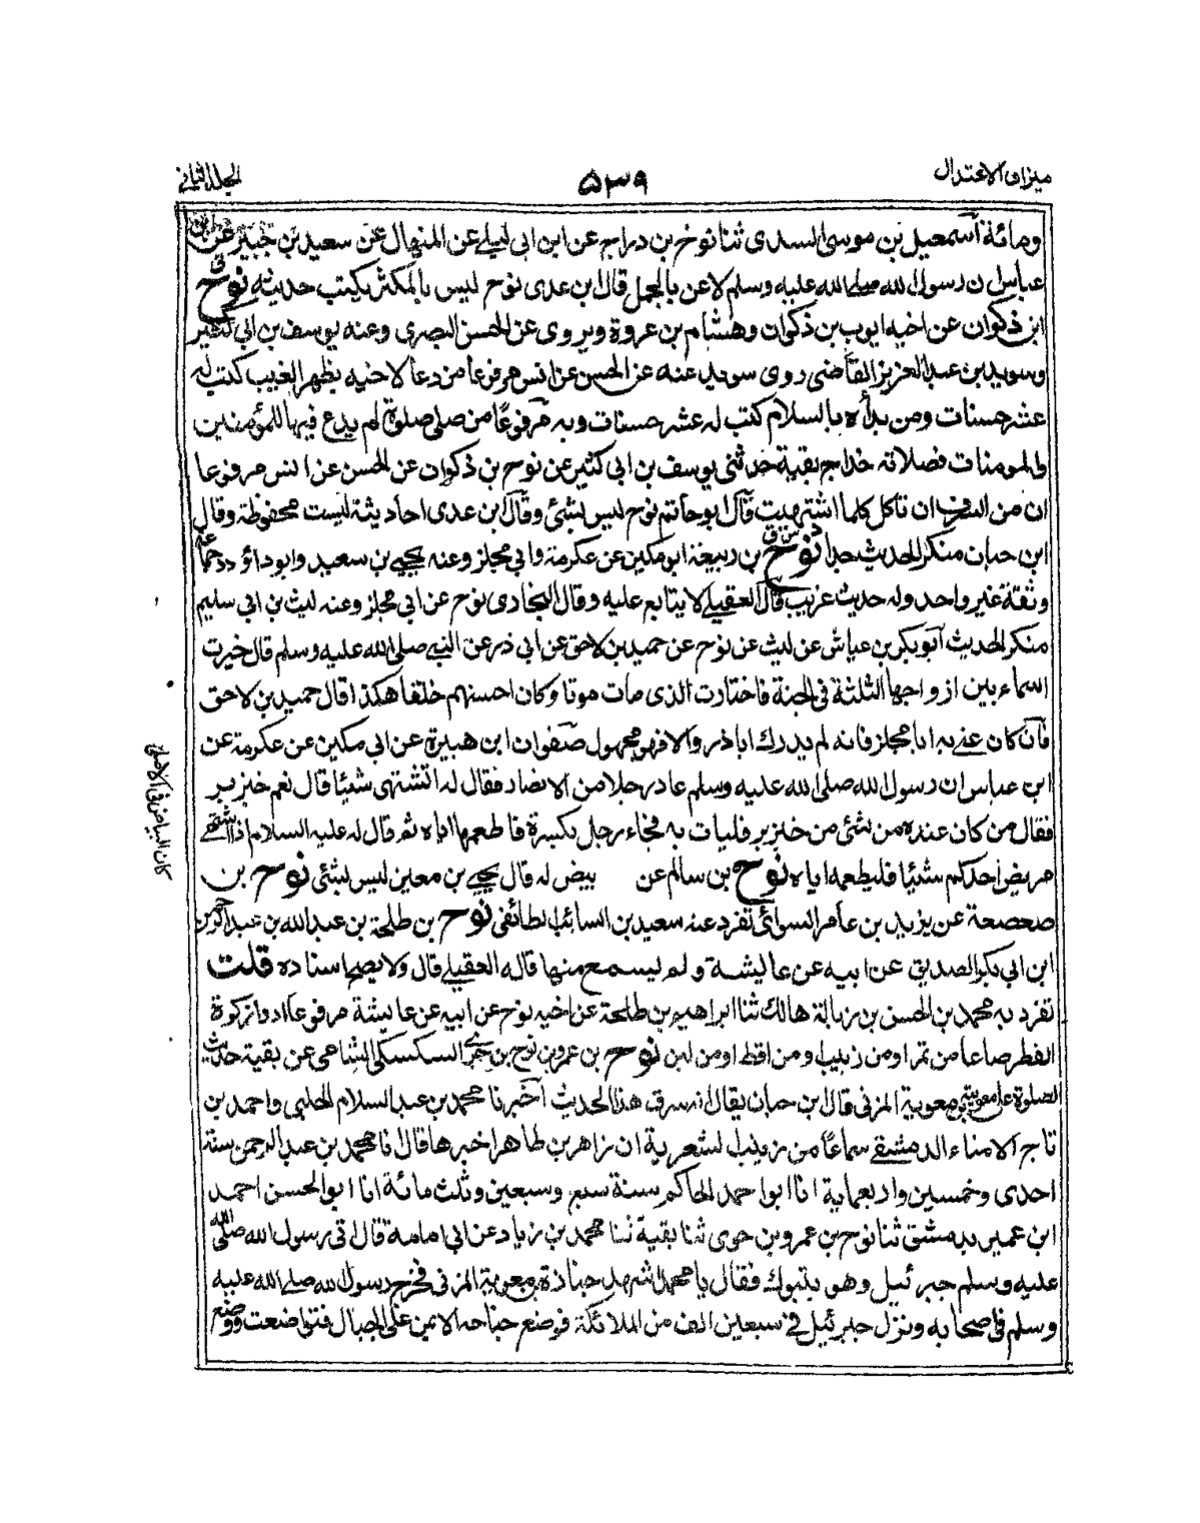 ميزان الاعتدال
٥٣٩
المجلد الثاني
ومائة اسمعيل بن موسى السدى ثنا نوح بن دراج عن ابن ابى ليلى عن المنهال عن سعيد بن جبير عن ابن
عباس ان رسول الله صلى الله عليه وسلم لاعن بالحمل قال ابن عدى نوح ليس بالمكثر يكتب حديثه نوح
ابن ذكوان عن اخيه ايوب بن ذكوان وهشام بن عروة ويروى عن الحسن البصرى وعنه يوسف بن ابى كثير
وسويد بن عبد العزيز القاضى روى سويد عنه عن الحسن عن انس مرفوعا من دعا لاخيه بظهر الغيب كتب له
عشر حسنات ومن بدأه بالسلام كتب له عشر حسنات وبه مرفوعا من صلى صلوة لم يدع فيها للمؤمنين
والمومنات فصلاته خداج بقية حدثنى يوسف بن ابى كثير عن نوح بن ذكوان عن الحسن عن انس مرفوعا
ان من السرف ان تاكل كلما اشتهيت قال ابو حاتم نوح ليس بشئ وقال ابن عدى احاديثه ليست محفوظة وقال
ابن حبان منكر الحديث جدا نوح بن ربيعة ابو مكين عن عكرمة وابى مجلز وعنه يحيى بن سعيد وابو داؤد جماعة
وثقة غير واحد وله حديث غريب قال العقيلى لا يتابع عليه وقال البخارى نوح عن ابى مجلز وعنه ليث بن ابى سليم
منكر الحديث ابو بكر بن عياش عن ليث عن نوح عن حميد بن لاحق عن ابى ذر عن النبى صلى الله عليه وسلم قال خيرت
اسماء بين ازواجها الثلثة فى الجنة فاختارت الذى مات موتا وكان احسنهم خلقا هكذا قال حميد بن لاحق
فان كان عنى به ابا مجلز فانه لم يدرك اباذر والا فهو مجهول صفوان ابن هبيرة عن ابى مكين عن عكرمة عن
ابن عباس ان رسول الله صلى الله عليه وسلم عاد رجلا من الانصار فقال له اتشتهى شيئا قال نعم خبز بر
فقال من كان عنده من شئ من خبز بر فليات به فجاء رجل بكسرة فاطعمها اياه ثم قال له عليه السلام اذا اشتهى
مريض احدكم شيئا فليطعمه اياه نوح بن سالم عن بيض له قال يحيى بن معين ليس بشئ نوح بن
صعصعة عن يزيد بن عامر السوائى تفرد عنه سعيد بن السائب الطائفى نوح بن طلحة بن عبد الله بن عبد الرحمن
ابن ابى بكر الصديق عن ابيه عن عايشة ولم يسمع منها قاله العقيلى قال ولا يصح اسناده قلت
تفرد به محمد بن الحسن بن زبالة هالك ثنا ابراهيم بن طلحة عن اخيه نوح عن ابيه عن عايشة مرفوعا ادوا زكوة
الفطر صاعا من تمر او من زبيب او من اقط او من لبن نوح بن عمرو بن نوح بن حوى السكسكى الشامى عن بقية حديث
الصلوة على معوية بن معوية المزنى قال ابن حبان يقال انه سرق هذا الحديث اخبرنا محمد بن عبد السلام الحلبى واحمد بن
تاج الامناء الدمشقى سماعا من زينب الشعرية ان زاهر بن طاهر اخبرها قال انا محمد بن عبد الرحمن سنة
احدى وخمسين واربعماية انا ابو احمد الحاكم سنة سبع وسبعين وثلث مائة انا ابو الحسن احمد
ابن عمير بدمشق ثنا نوح بن عمرو بن حوى ثنا بقية ثنا محمد بن زياد عن ابى امامة قال اتى رسول الله صلى الله
عليه وسلم جبرئيل وهو بتبوك فقال يا محمد اشهد جنازة معوية المزنى فخرج رسول الله صلى الله عليه
وسلم فى اصحابه ونزل جبرئيل فى سبعين الف من الملائكة فوضع جناحه الايمن على الجبال فتواضعت ووضع
كان البياض فى الاصل